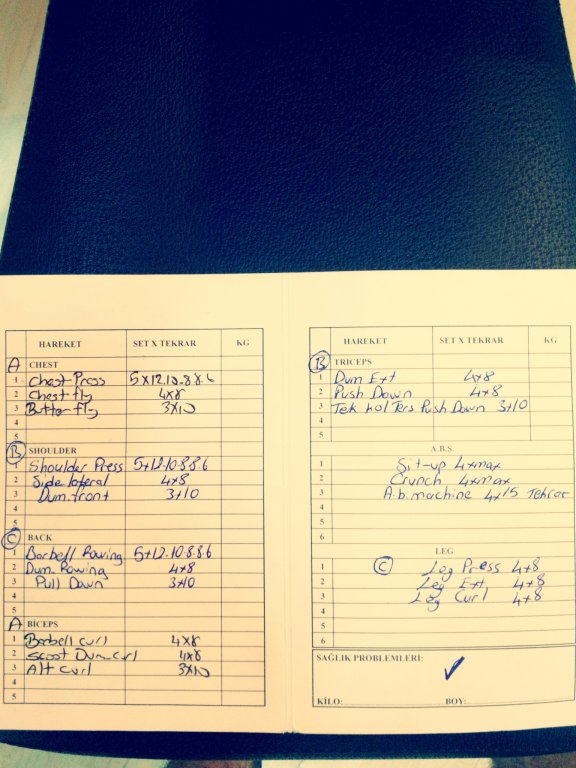 HAREKET SET X TEKRAR KG
A CHEST
1 Chest Press 5x12.10.8.8.6
2 Chest fly 4x8
3 Butterfly 3x10
4
5
B SHOULDER
1 Shoulder Press 5+12.10.8.8.6
2 Side lateral 4+8
3 Dum.front 3+10
4
5
C BACK
1 Barbell Rowing 5+12.10.8.8.6
2 Dum.Rowing 4+8
3 Pull Down 3x10
4
5
A BİCEPS
1 Barbell curl 4x8
2 Scoot Dum.curl 4x8
3 Alt curl 3x10
4
5
HAREKET SET X TEKRAR KG
B TRICEPS
1 Dum Ext 4x8
2 Push Down 4+8
3 Tek kol Ters Push Down 3+10
4
5
A.B.S.
1 Sit-up 4xmax
2 Crunch 4xmax
3 A.b.machine 4x15 Tekrar
4
5
6
LEG
1 C Leg Press 4+8
2 Leg Ext 4+8
3 Leg Curl 4+8
4
5
6
SAĞLIK PROBLEMLERİ:
KİLO: BOY: